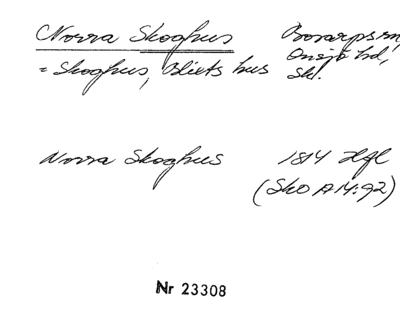 Norra Skoghus Bosarps sn,
Onsjö hd,
= Skoghus, Bliets hus Sk.
Norra Skoghus 1814 Hfl
(Sko A I 4:92)
Nr 23308